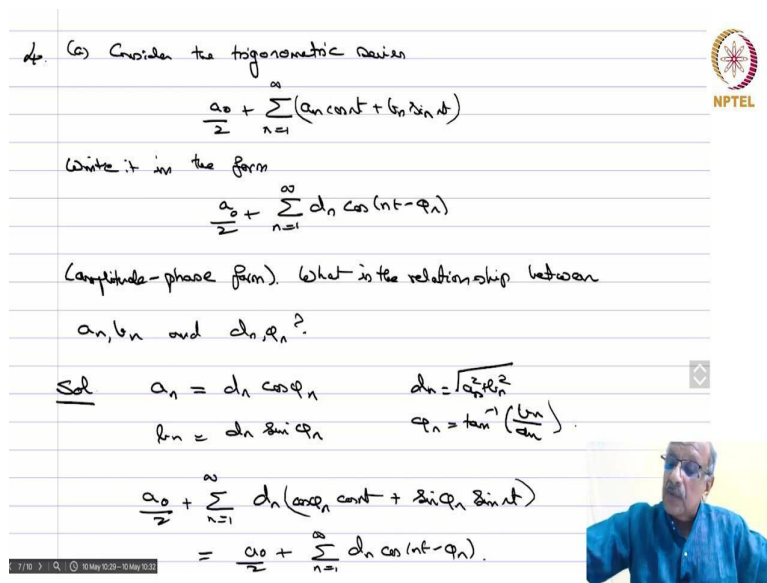 4. (a) Consider the trigonometric series
a₀/2 + ∑_{n=1}^{∞} (aₙ cos nt + bₙ sin nt)
Write it in the form
a₀/2 + ∑_{n=1}^{∞} dₙ cos (nt - φₙ)
(amplitude-phase form). What is the relationship between
aₙ, bₙ and dₙ, φₙ?
Sol aₙ = dₙ cos φₙ dₙ = √(aₙ² + bₙ²)
bₙ = dₙ sin φₙ φₙ = tan⁻¹ (bₙ/aₙ).
a₀/2 + ∑_{n=1}^{∞} dₙ (cos φₙ cos nt + sin φₙ sin nt)
= a₀/2 + ∑_{n=1}^{∞} dₙ cos (nt - φₙ).
NPTEL
7/10 10 May 10:29 - 10 May 10:32